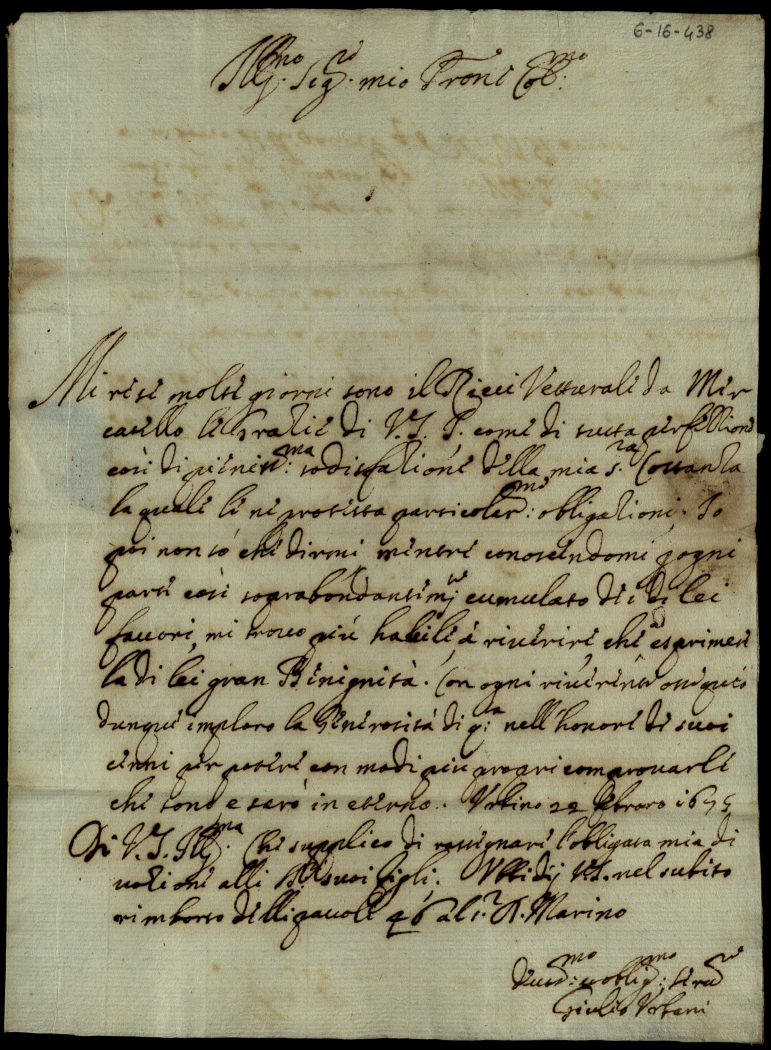 6-16-438
Ill.mo Sig.re mio Prone Col.mo
Mi rese molti giorni sono il Ricci Vetturale da Mer
catello le grazie di V.S. Ill. come di tutta perfettione
così di pieniss:ma sodisfatione della mia s.ra Costanza
la quale le ne protesta particolar:me obligationi. Io
poi non sò che dirmi mentre conoscendomi p ogni
parte così soprabondantem.te cumulato de i di lei
favori, mi trovo più habile à riverire che ad esprimere
la di lei gran Benignità. Con ogni riverente ossequio
dunque imploro la Generosità di q.a nell'honore de suoi
cenni per potere con modi più propri comprovarle
che sono e sarò in eterno. Urbino 22 febraro
Di V.S. Ill.ma Che supplico di rassegnare l'obligata mia di
votione alli suoi figli. nel subito
rimborso delli pavoli 46 al s.r D. Marino
Devot.mo et oblig.mo Ser.re
Giulio Urbani